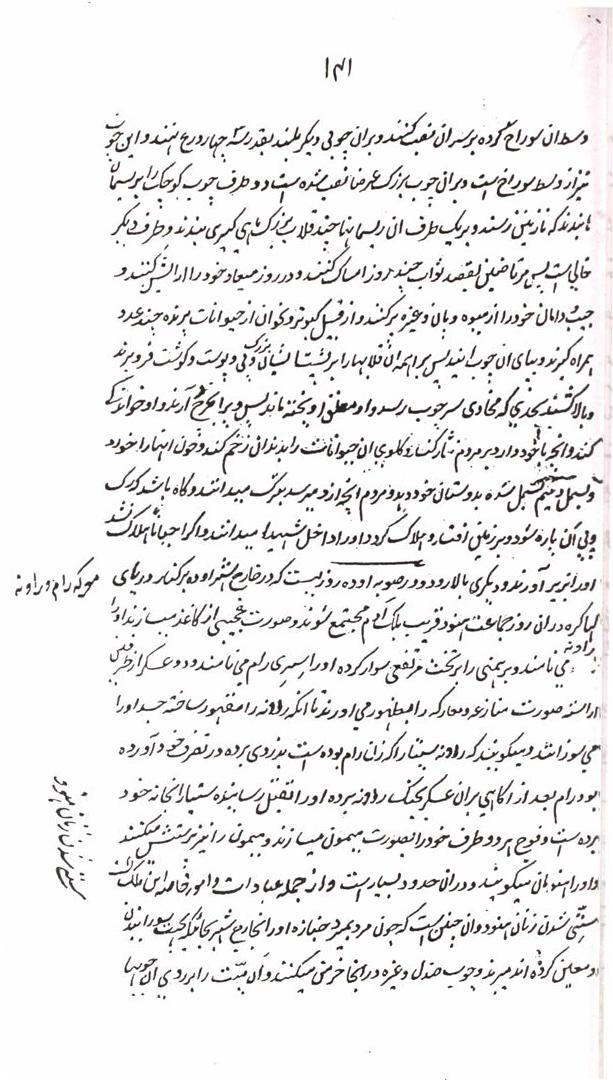 ۱۴۱
وسط ان سوراخ کرده بر سر ان نصب کنند و بران چوبی دیگر بلند بقدر سه چهار درع نهند و این چوب
نیز از وسط سوراخ است و بران چوب بزرگ عرضا نصب شده است و دو طرف چوب کوچک را بریسمان
بندند که تا زمین رسد و بر یک طرف ان ریسمانها چند قلاب بزرگ ماهی گیری بندند و طرف دیگر
خالی است پس مرتاضین بقصد ثواب چند روز امساک کنند و در روز میعاد خود را ارایش کنند و
جیب و دامان خود را از میوه و پان و غیره پر کنند و از قبیل کبوتر و نحو ان از حیوانات پرنده چند عدد
همراه گیرند و بپای ان چوب ایند پس براهمه ان قلابها را بر پشت ایشان بزرگ و پی و پوست و گوشت فرو برند
و بالا کشند بحدی که محاذی سر چوب رسد و او معلق اویخته ماند پس ویرا بچرخ آرند و او خوانندگی
کند و انچه با خود دارد بر مردم نثار کند و گلوی ان حیوانات را بدندان زخم کند و خون انها را خورد
و بسمل و نیم بسمل شده بدوستان خود دهد و مردم انچه از و میرسد تبرک میدانند و گاه باشد که رگ
و پی ان پاره شود و بر زمین افتد و هلاک گردد و او را داخل شهیدا میدانند و اگر احیانا هلاک نشد
او را بزیر آورند و دیگری بالا رود و در صوبه اوده روزیست که در خارج شهر اوده بر کنار دریای
معرکه رام و راونه
در ان روز جماعت هنود قریب یک لک ادم مجتمع شوند و صورت عجیبی از کاغذ میسازند او را
راونه می نامند و برهمنی را بر تخت مرتفعی سوار کرده او را سری رام می نامند و دو عسکر از طرفین
اراسته صورت منازعه و معارکه را بظهور می اورند تا انکه راونه را مقهور ساخته جسد او را
می سوزانند و میگویند که راونه سیتا را که زن رام بوده است بدزدی برده در تصرف خود آورده
بود رام بعد از اگاهی بران عسکر بجنگ راونه برده او را بقتل رسانیده سیتا را بخانه خود
برده است و فوج هر دو طرف خود را بصورت میمون میسازند و میمون را نیز پرستش میکنند
و او را هنومان میگویند و در ان حدود بسیار است و از جمله عبادات و امور خاصه این ملک
ستی شدن زنان هنود
ستی شدن زنان هنود و ان چنین است که چون مرد بمیرد جنازه او را بخارج شهر بجائیکه بجهت سوزانیدن
معین کرده اند میبرند و چوب صندل و غیره در انجا خرمن میکنند و ان میت را بر روی ان چوبها